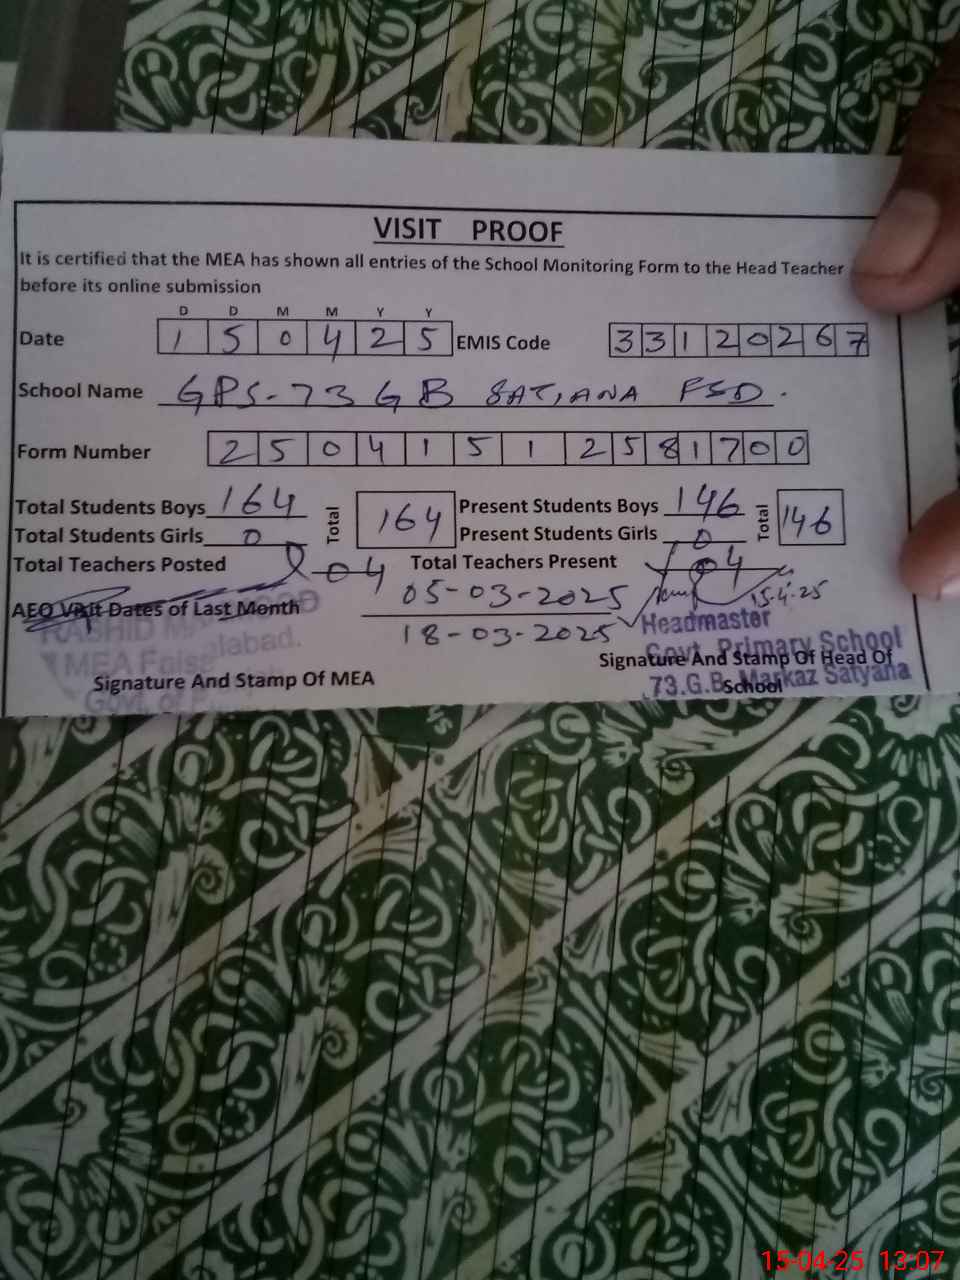 VISIT PROOF
It is certified that the MEA has shown all entries of the School Monitoring Form to the Head Teacher
before its online submission
D D M M Y Y
Date 1 5 0 4 2 5 EMIS Code 3 3 1 2 0 2 6 7
School Name GPS-73 GB SATIANA FSD.
Form Number 2 5 0 4 1 5 1 2 5 8 1 7 0 0
Total Students Boys 164 Total 164 Present Students Boys 146 Total 146
Total Students Girls 0 Present Students Girls 0
Total Teachers Posted 04 Total Teachers Present 04
AEO Visit Dates of Last Month 05-03-2025 15-4-25
18-03-2025
RASHID
MEA
Govt. of
Headmaster
Govt. Primary School
73.G.B. Markaz Satyana
Signature And Stamp Of MEA
Signature And Stamp Of Head Of
School
15-04-25 13:07